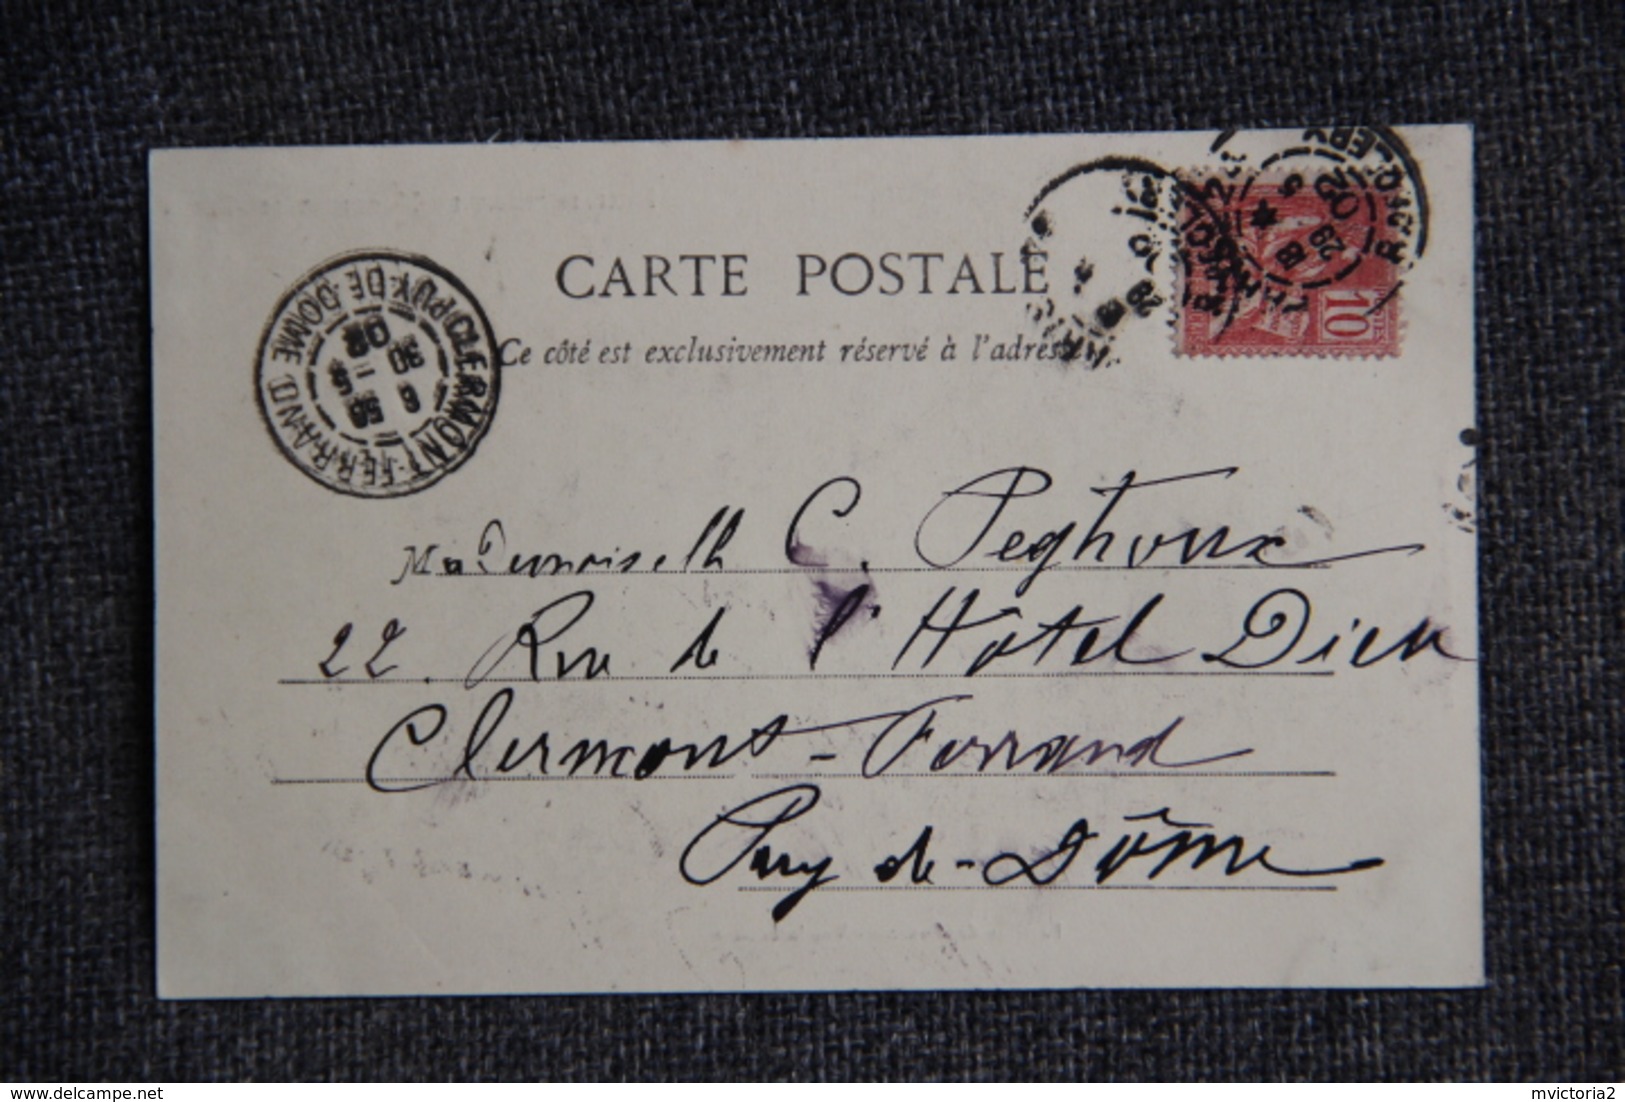 CARTE POSTALE
Ce côté est exclusivement réservé à l'adresse
CLERMONT-FERRAND
PUY DE DOME
6 50
30 -5
02
10
Mademoiselle C. Peghoux
22. Rue de l'Hôtel Dieu
Clermont-Ferrand
Puy-de-Dôme
delcampe.net
mvictoria2